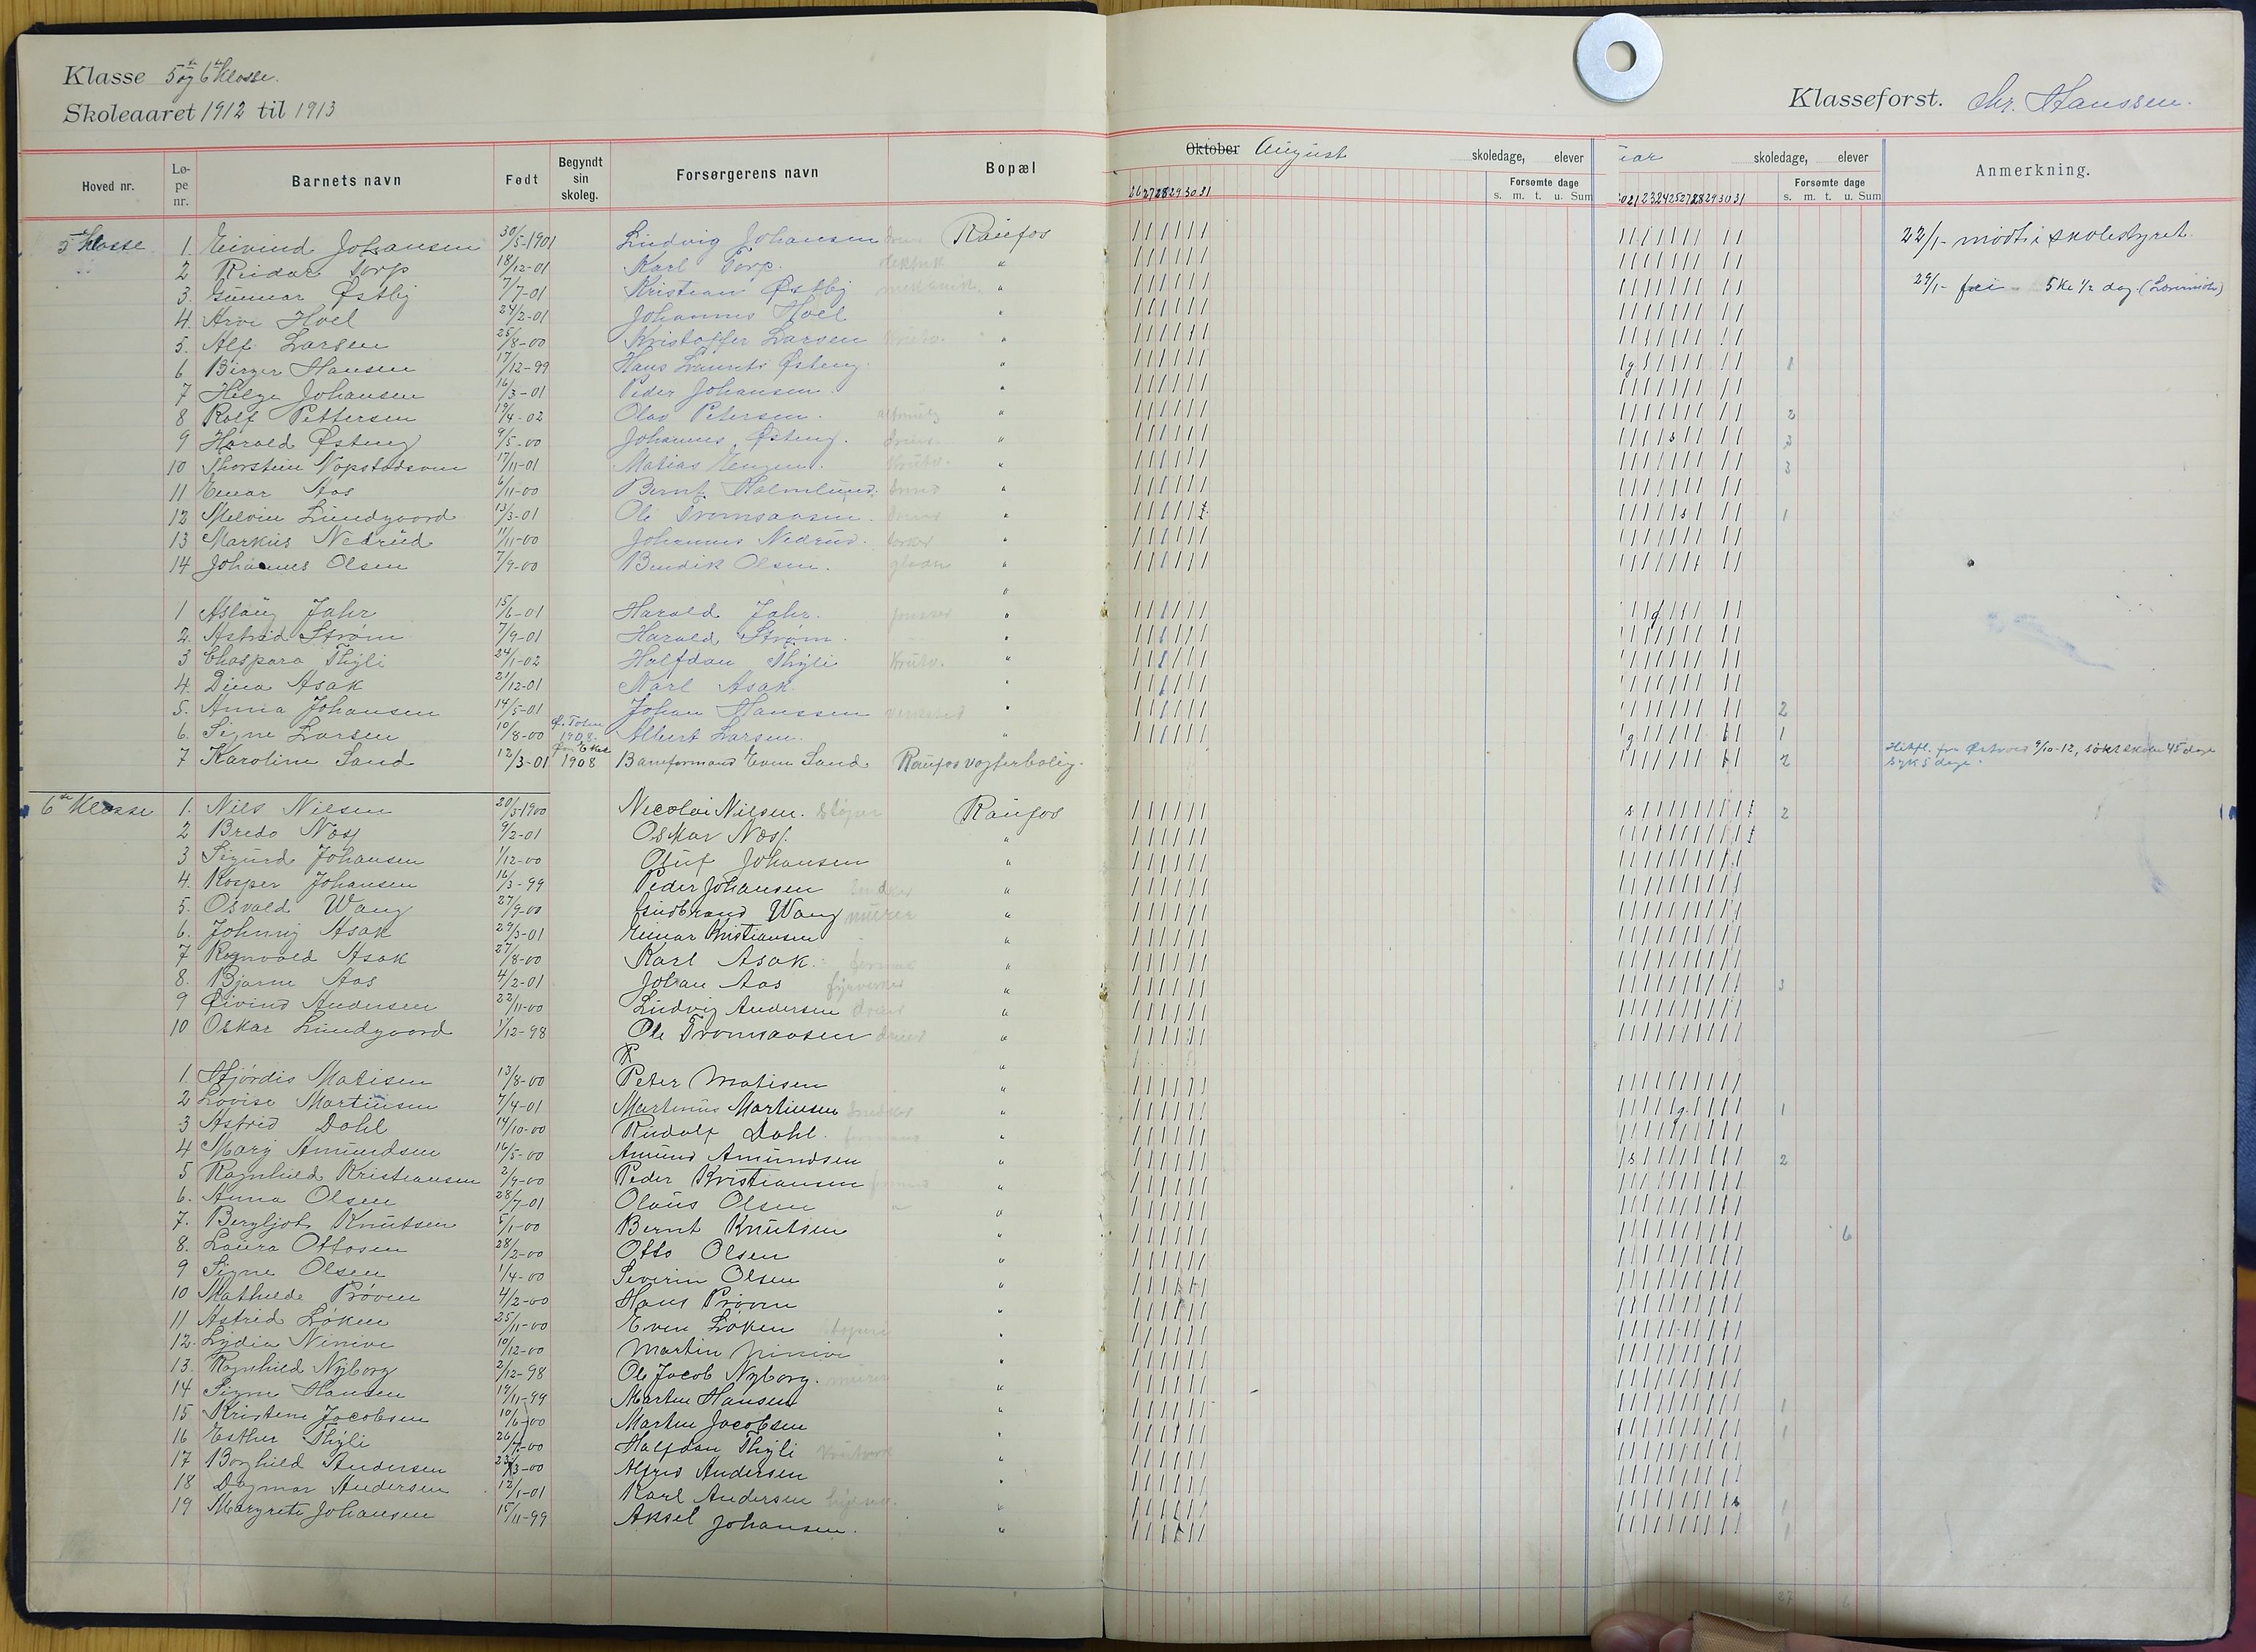 Klasse 5te og 6te Klasse.
Skoleaaret 1912 til 1913
Klasseforst. Chr. Hanssen.
Hoved nr. Løpe nr. Barnets navn Født Begyndt sin skoleg. Forsørgerens navn Bopæl
Oktober August skoledage, elever
Forsømte dage
s. m. t. u. Sum
26 27 28 29 30 31
uar skoledage, elever
Forsømte dage
s. m. t. u. Sum
Anmerkning.
5te Klasse 1. Eivind Johansen 30/5-1901 Ludvig Johansen Raufos 22/1- møtte skolestyret.
2 Reidar Torp 18/12-01 Karl Torp. "
3. Gunnar Østby 7/7-01 Kristian Østby " 29/1- fri 5 kl 1/2 dag
4. Arve Hoel 24/2-01 Johannes Hoel "
5. Alf Larsen 25/8-00 Kristoffer Larsen "
6 Birger Hansen 17/12-99 Hans Østeng. " 1
7 Helge Johansen 16/3-01 Peder Johansen "
8 Rolf Pettersen 19/4-02 Olav Petersen. " 2
9 Harald Østeng 9/5-00 Johannes Østeng. " 3
10 Thorstein 17/11-01 Matias " 3
11 Einar Aas 6/11-00 Bernt Holmlund. "
12 Melvin Lundgaard 13/3-01 Ole Tromsaasen. " 1
13 Markus Nedrud 11/11-00 Johannes Nedrud. "
14 Johannes Olsen 7/9-00 Bendik Olsen. "
1 Aslaug Jahr 15/6-01 Harald Jahr. "
2. Astrid Strøm 7/9-01 Harald Strøm. "
3 Chaspara Thyli 24/1-02 Halfdan Thyli "
4. Dina Asak 21/12-01 Karl Asak. "
5. Anna Johansen 14/5-01 Johan Hanssen " 2
6. Signe Larsen 10/8-00 Ø. Toten 1908. Albert Larsen. " 1
7 Karoline Sand 12/3-01 1908 Baneformand Even Sand Raufos vogterbolig. 2 9/10-12, søkt skole 45 dage
syk 5 dage.
6te Klasse 1. Nils Nilsen 20/5-1900 Nicolai Nilsen. Støper Raufos 2
2 Bredo Næss 9/2-01 Oskar Næss. "
3 Sigurd Johansen 1/12-00 Oluf Johansen "
4. Kasper Johansen 16/3-99 Peder Johansen "
5. Osvald Wang 27/9-00 Gudbrand Wang murer "
6. Johnny Asak 29/3-01 Einar Kristiansen "
7 Ragnvald Asak 27/8-00 Karl Asak. "
8. Bjarne Aas 4/2-01 Johan Aas fyrverker " 3
9 Øivind Andersen 22/11-00 Ludvig Andersen "
10 Oskar Lundgaard 1/12-98 Ole Tromsaasen "
R "
1. Hjørdis Matisen 13/8-00 Peter Matisen "
2 Lovise Martinsen 7/4-01 Martinus Martinsen " 1
3 Astrid Dahl 14/10-00 Rudolf Dahl. "
4 Mary Amundsen 16/5-00 Amund Amundsen " 2
5 Ragnhild Kristiansen 2/9-00 Peder Kristiansen "
6. Anna Olsen 28/7-01 Olaus Olsen "
7. Bergljot Knutsen 5/1-00 Bernt Knutsen " 6
8. Laura Ottosen 28/2-00 Otto Olsen "
9 Signe Olsen 1/4-00 Severin Olsen "
10 Mathilde Prøven 4/2-00 Hans Prøven "
11 Astrid Løken 25/11-00 Even Løken "
12. Lydia Ninive 10/12-00 Martin Ninive "
13. Ragnhild Nyborg 2/12-98 Ole Jacob Nyborg. murer "
14 Signe Hansen 19/11-99 Martin Hansen " 1
15 Kristine Jacobsen 10/6-00 Martin Jacobsen " 1
16 Esther Thyli 26/1-00 Halfdan Thyli "
17 Borghild Andersen 23/3-00 Alfred Andersen "
18 Dagmar Andersen 12/1-01 Karl Andersen " 1
19 Margrete Johansen 15/11-99 Aksel Johansen. " 1